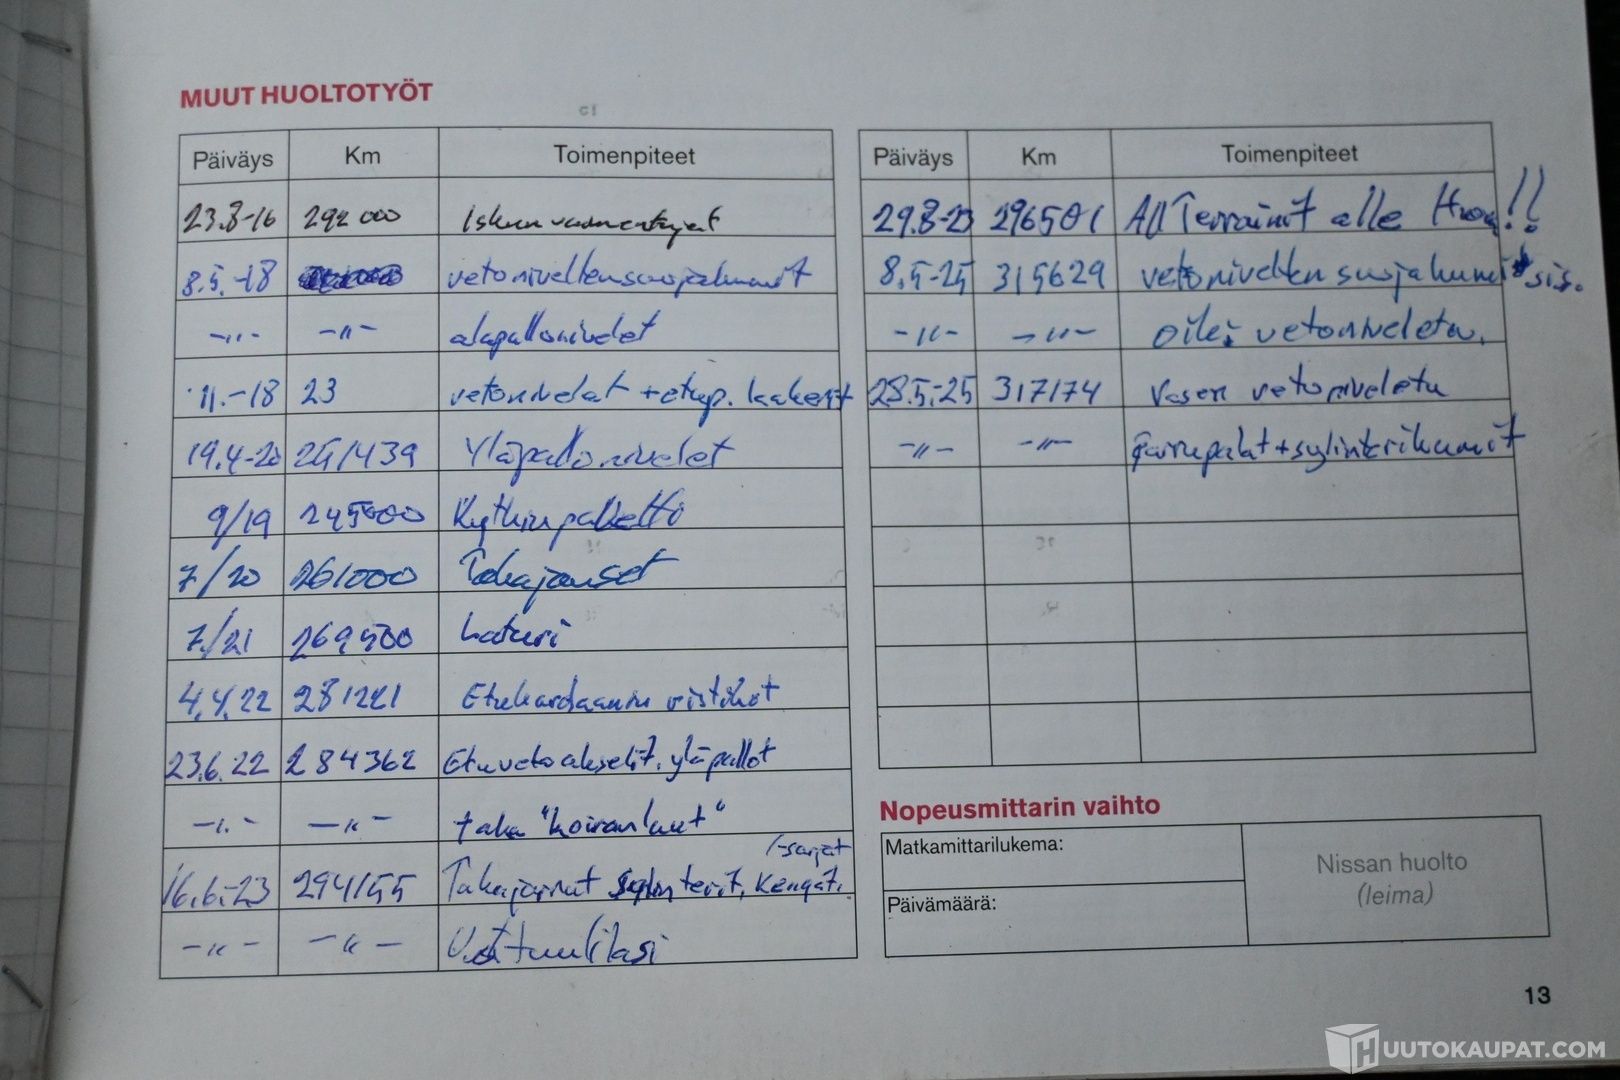 MUUT HUOLTOTYÖT
Päiväys Km Toimenpiteet
23.8-16 292 000 Iskunvaimentajat
8.5.-18 vetoniveltensuojakumit
-"- -"- alapallonivelet
11.-18 23 vetonivelat + etup. kakerit
19.4-20 251439 Yläpallonivelet
9/19 245000 Kytkinpaketti
7/20 261000 Takajouset
7/21 269500 Laturi
4.4.22 281221 Etukardaanin ristikot
23.6.22 284362 Etuvetoakselit, yläpallot
-"- -"- taka "koiranluut"
16.6.-23 294155 Takajarrut sylinterit, Kengät, /-sarjat
-"- -"- Uusi tuulilasi
Päiväys Km Toimenpiteet
29.8-23 296501 All Terrainit alle !!
8.5-25 315629 vetonivelten suojakumit sis.
-"- -"- oikei vetoniveletu.
28.5.-25 317174 Vasen vetoniveletu
-"- -"- Jarrupalat+sylinterikumit
Nopeusmittarin vaihto
Matkamittarilukema:
Päivämäärä:
Nissan huolto
(leima)
13
HUUTOKAUPAT.COM